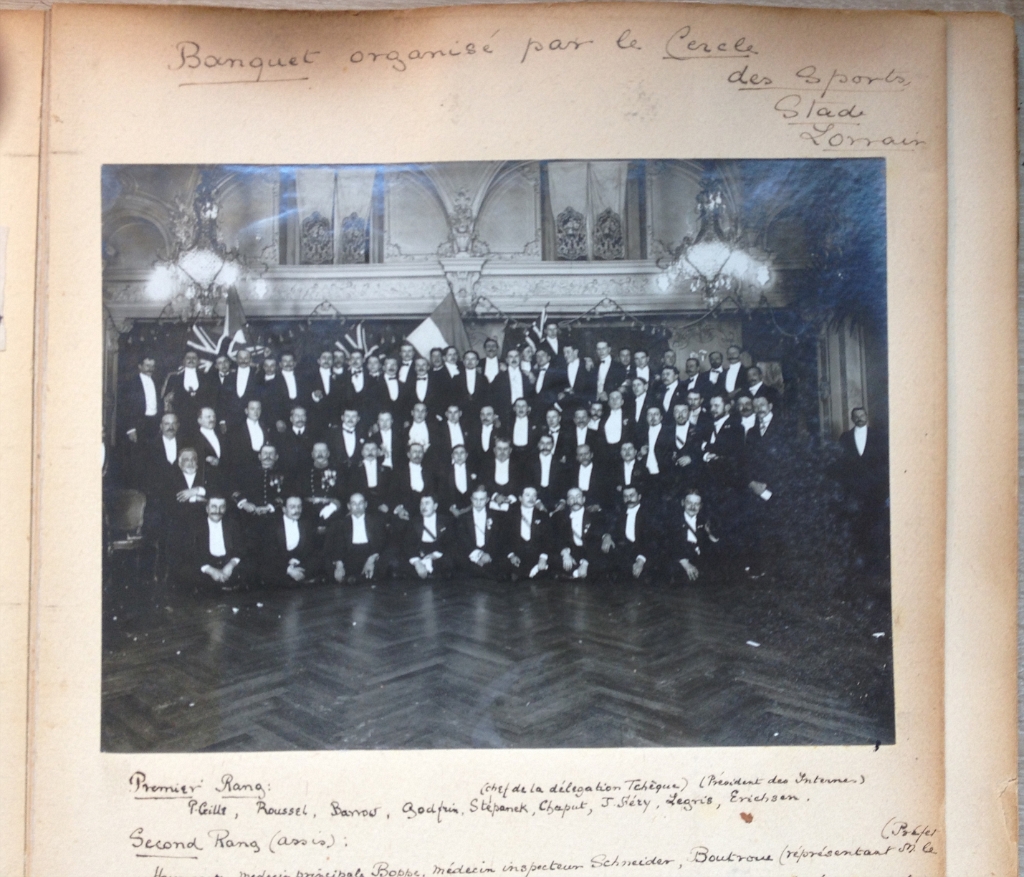 Banquet organisé par le Cercle
des Sports
Stade
Lorrain
Premier Rang:
(chef de la délégation Tchèque) (Président des Internes)
P. Gille, Roussel, Barrow, Godfrin, Stépanek, Chaput, J. Féry, Legris, Erichsen.
Second Rang (assis):
(Préfet
médecin principale Boppe, médecin inspecteur Schneider, Boutroue (représentant Mr le